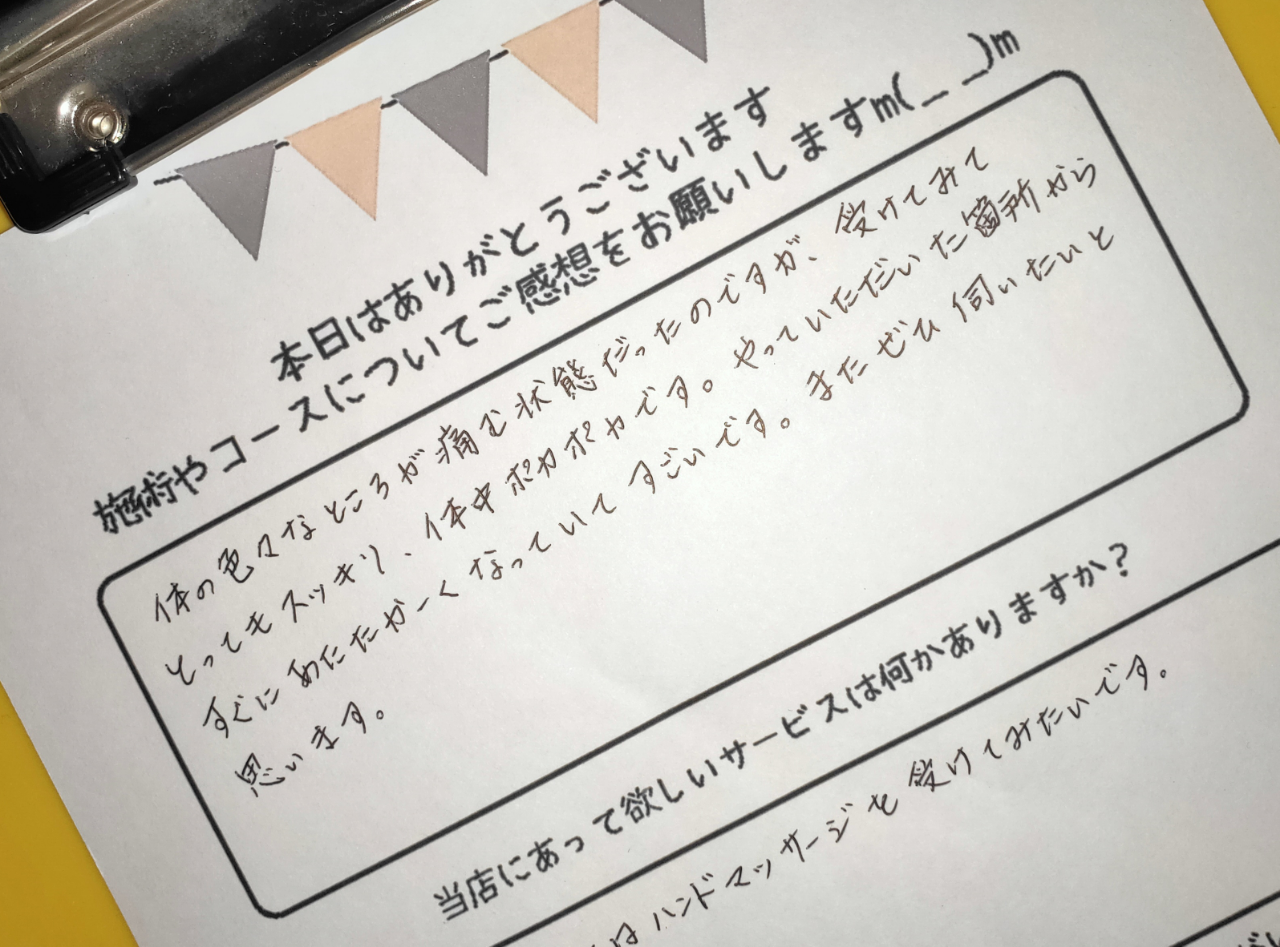 本日はありがとうございます
施術やコースについてご感想をお願いしますm(_ _)m
体の色々なところが痛む状態だったのですが、受けてみて
とってもスッキリ、体中ポカポカです。やっていただいた箇所から
すぐにあたたかーくなっていてすごいです。またぜひ伺いたいと
思います。
当店にあって欲しいサービスは何かありますか？
はハンドマッサージを受けてみたいです。